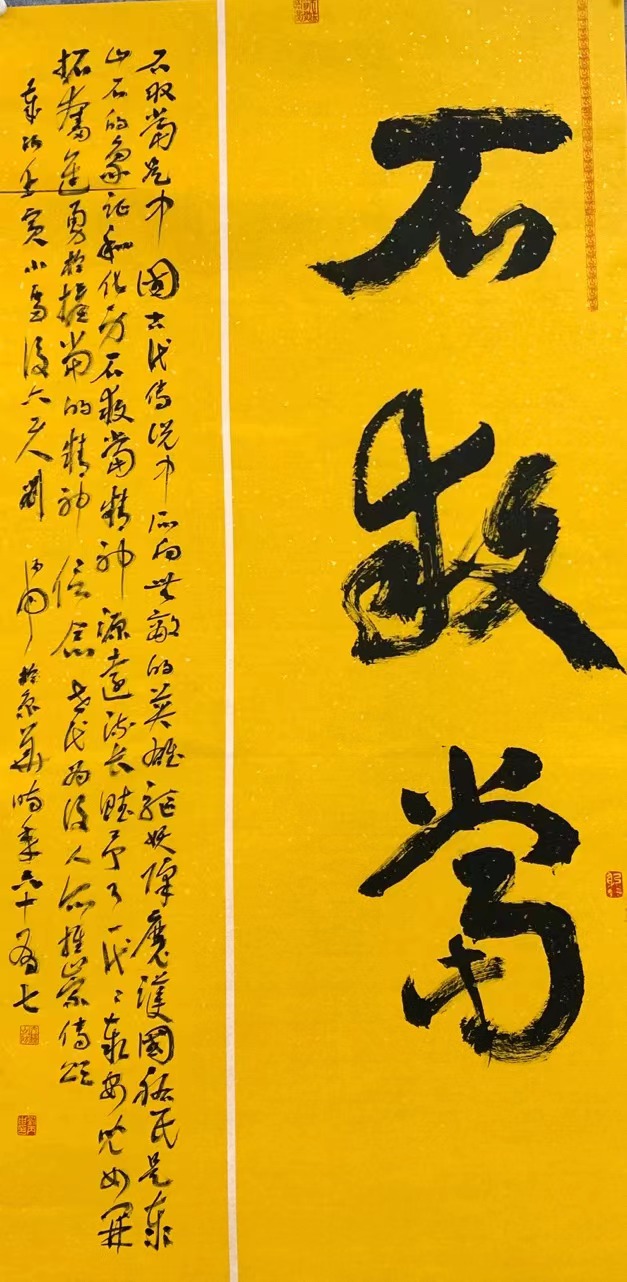 石敢當
石敢當是中國古代傳說中所向無敵的英雄驅妖降魔護國祐民是泰
山石的象征和化身石敢當精神源遠流長賦予了一代代泰安兒女開
拓奮進勇於擔當的精神信念世代為後人所推崇傳頌
歲次壬寅小雪後六天劉 於京華時年六十有七